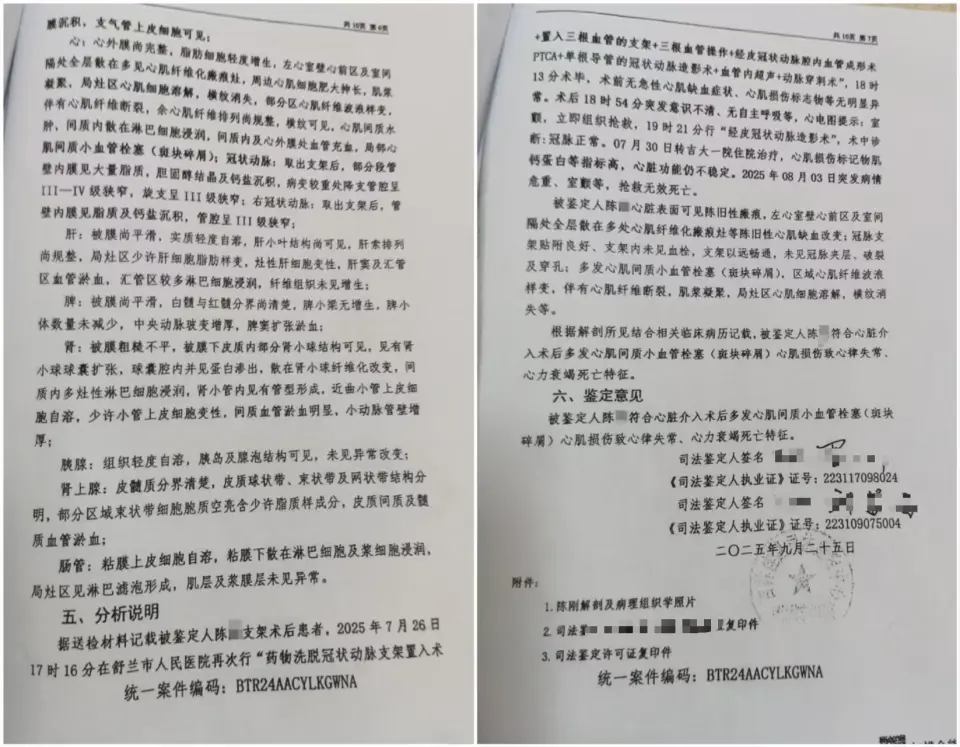 共10页 第6页
膜沉积，支气管上皮细胞可见；
心：心外膜尚完整，脂肪细胞轻度增生，左心室壁心前区及室间
隔处全层散在多见心肌纤维化瘢痕灶，周边心肌细胞肥大伸长，肌浆
凝聚，局灶区心肌细胞溶解，横纹消失，部分区心肌纤维波浪样变，
伴有心肌纤维断裂，余心肌纤维排列尚规整，横纹可见，心肌间质水
肿，间质内散在淋巴细胞浸润，间质内及心外膜处血管充血，局部心
肌间质小血管栓塞（斑块碎屑）；冠状动脉：取出支架后，部分段管
壁内膜见大量脂质，胆固醇结晶及钙盐沉积，病变较重处降支管腔呈
III—IV级狭窄，旋支呈III级狭窄；右冠状动脉：取出支架后，管
壁内膜见脂质及钙盐沉积，管腔呈III级狭窄；
肝：被膜尚平滑，实质轻度自溶，肝小叶结构尚可见，肝索排列
尚规整，局灶区少许肝细胞脂肪样变，灶性肝细胞变性，肝窦及汇管
区血管淤血，汇管区较多淋巴细胞浸润，纤维组织未见增生；
脾：被膜尚平滑，白髓与红髓分界尚清楚，脾小梁无增生，脾小
体数量未减少，中央动脉玻变增厚，脾窦扩张淤血；
肾：被膜粗糙不平，被膜下皮质内部分肾小球结构可见，见有肾
小球球囊扩张，球囊腔内并见蛋白渗出，散在肾小球纤维化改变，间
质内多灶性淋巴细胞浸润，肾小管内见有管型形成，近曲小管上皮细
胞自溶，少许小管上皮细胞变性，间质血管淤血明显，小动脉管壁增
厚；
胰腺：组织轻度自溶，胰岛及腺泡结构可见，未见异常改变；
肾上腺：皮髓质分界清楚，皮质球状带、束状带及网状带结构分
明，部分区域束状带细胞胞质空亮含少许脂质样成分，皮质间质及髓
质血管淤血；
肠管：粘膜上皮细胞自溶，粘膜下散在淋巴细胞及浆细胞浸润，
局灶区见淋巴滤泡形成，肌层及浆膜层未见异常。
五、分析说明
据送检材料记载被鉴定人陈 支架术后患者，2025年7月26日
17时16分在舒兰市人民医院再次行“药物洗脱冠状动脉支架置入术
统一案件编码：BTR24AACYLKGWNA
共10页 第7页
+置入三根血管的支架+三根血管操作+经皮冠状动脉腔内血管成形术
PTCA+单根导管的冠状动脉造影术+血管内超声+动脉穿刺术”，18时
13分术毕，术前无急性心肌缺血症状、心肌损伤标志物等无明显异
常。术后18时54分突发意识不清、无自主呼吸等，心电图提示：室
颤，立即组织抢救，19时21分行“经皮冠状动脉造影术”，术中诊
断：冠脉正常。07月30日转吉大一院住院治疗，心肌损伤标记物肌
钙蛋白等指标高，心脏功能仍不稳定。2025年08月03日突发病情
危重、室颤等，抢救无效死亡。
被鉴定人陈 心脏表面可见陈旧性瘢痕，左心室壁心前区及室间
隔处全层散在多处心肌纤维化瘢痕灶等陈旧性心肌缺血改变；冠脉支
架贴附良好、支架内未见血栓，支架以远畅通，未见冠脉夹层、破裂
及穿孔；多发心肌间质小血管栓塞（斑块碎屑），区域心肌纤维波浪
样变，伴有心肌纤维断裂，肌浆凝聚，局灶区心肌细胞溶解，横纹消
失等。
根据解剖所见结合相关临床病历记载，被鉴定人陈 符合心脏介
入术后多发心肌间质小血管栓塞（斑块碎屑）心肌损伤致心律失常、
心力衰竭死亡特征。
六、鉴定意见
被鉴定人陈 符合心脏介入术后多发心肌间质小血管栓塞（斑块
碎屑）心肌损伤致心律失常、心力衰竭死亡特征。
司法鉴定人签名
《司法鉴定人执业证》证号：223117098024
司法鉴定人签名
《司法鉴定人执业证》证号：223109075004
二〇二五年九月二十五日
附件：
1.陈刚解剖及病理组织学照片
2.司法鉴 证复印件
3.司法鉴定许可证复印件
统一案件编码：BTR24AACYLKGWNA